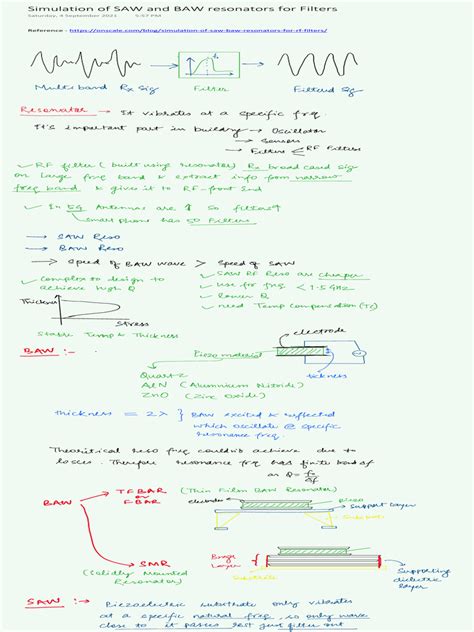 Simulation of SAW and BAW resonators for Filters
Saturday, 4 September 2021 5:57 PM
Reference - https://onscale.com/blog/simulation-of-saw-baw-resonators-for-rf-filters/
Multi band Rx Sig Filter Filtered Sig
Resonator → It vibrates at a specific frq.
It's important part in building → Oscillator
→ Sensors
→ Filters RF Filters
✓ RF filter (built using resonator) Rx broad cased sig
on large frq band & extract info from narrow
freq band & gives it to RF-front End
✓ In 5G Antennas are ↑ so filter↑
Smart phone has 50 Filters
→ SAW Reso
→ BAW Reso
→ Speed of BAW wave > Speed of SAW
✓ Complex to design to
achieve high Q
✓ SAW RF Reso are cheaper
✓ Use for frq < 1.5 GHz
✓ lower Q
✓ need Temp Compensation (Tc)
Thickness
Stress
Stable Temp & Thickness
electrode
BAW :-
Piezo material
Quartz
AlN (Aluminium Nitride)
ZnO (Zinc Oxide)
Thickness = 2λ } BAW excited & reflected
which oscillate @ specific
resonance frq.
Theoritical reso frq couldn't achieve due to
losses. Therefore resonance frq has finite band
as Q=
BAW
TFBAR or FBAR (Thin Film BAW Resonator)
electrode
Piezo
Support layer
SMR
(Solidly Mounted
Resonator)
Bragg
Layer
Substrate
Supporting
dielectric
layer
SAW :- Piezoelectric substrate only vibrates
at a specific natural freq, so only wave
close to it passes rest just filter out